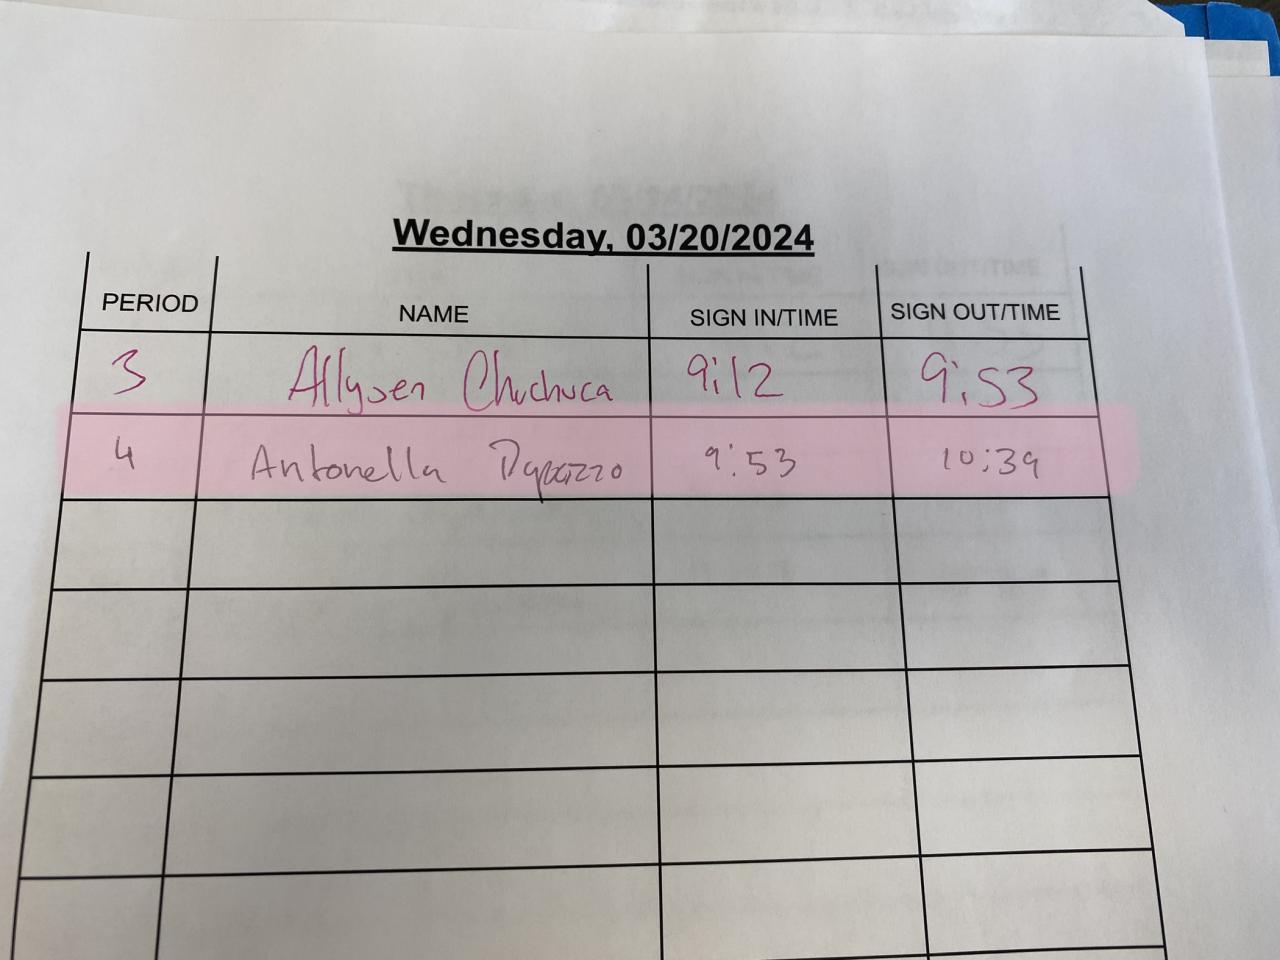 Wednesday, 03/20/2024
PERIOD NAME SIGN IN/TIME SIGN OUT/TIME
3 Allysen Chuchuca 9:12 9:53
4 Antonella 9:53 10:39